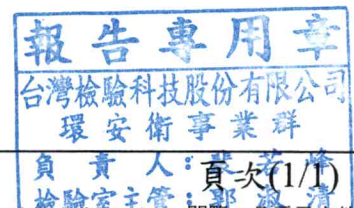 報告專用章
台灣檢驗科技股份有限公司
環安衛事業群
負責人：
頁次(1/1)
檢驗室主管：